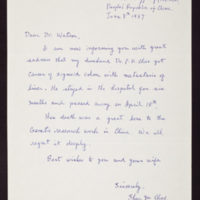 People's Republic of China
June 8th 1987
Dear Dr. Watson,
I am now informing you with great
sadness that my husband Dr. got
Cancer of sigmoid colon with metastasis of
liver. He stayed in the hospital for six
months and passed away on April 18th.
His death was a great loss to the
Genetic research work in China. We all
regret it deeply.
Best wishes to you and your wife
Sincerely,